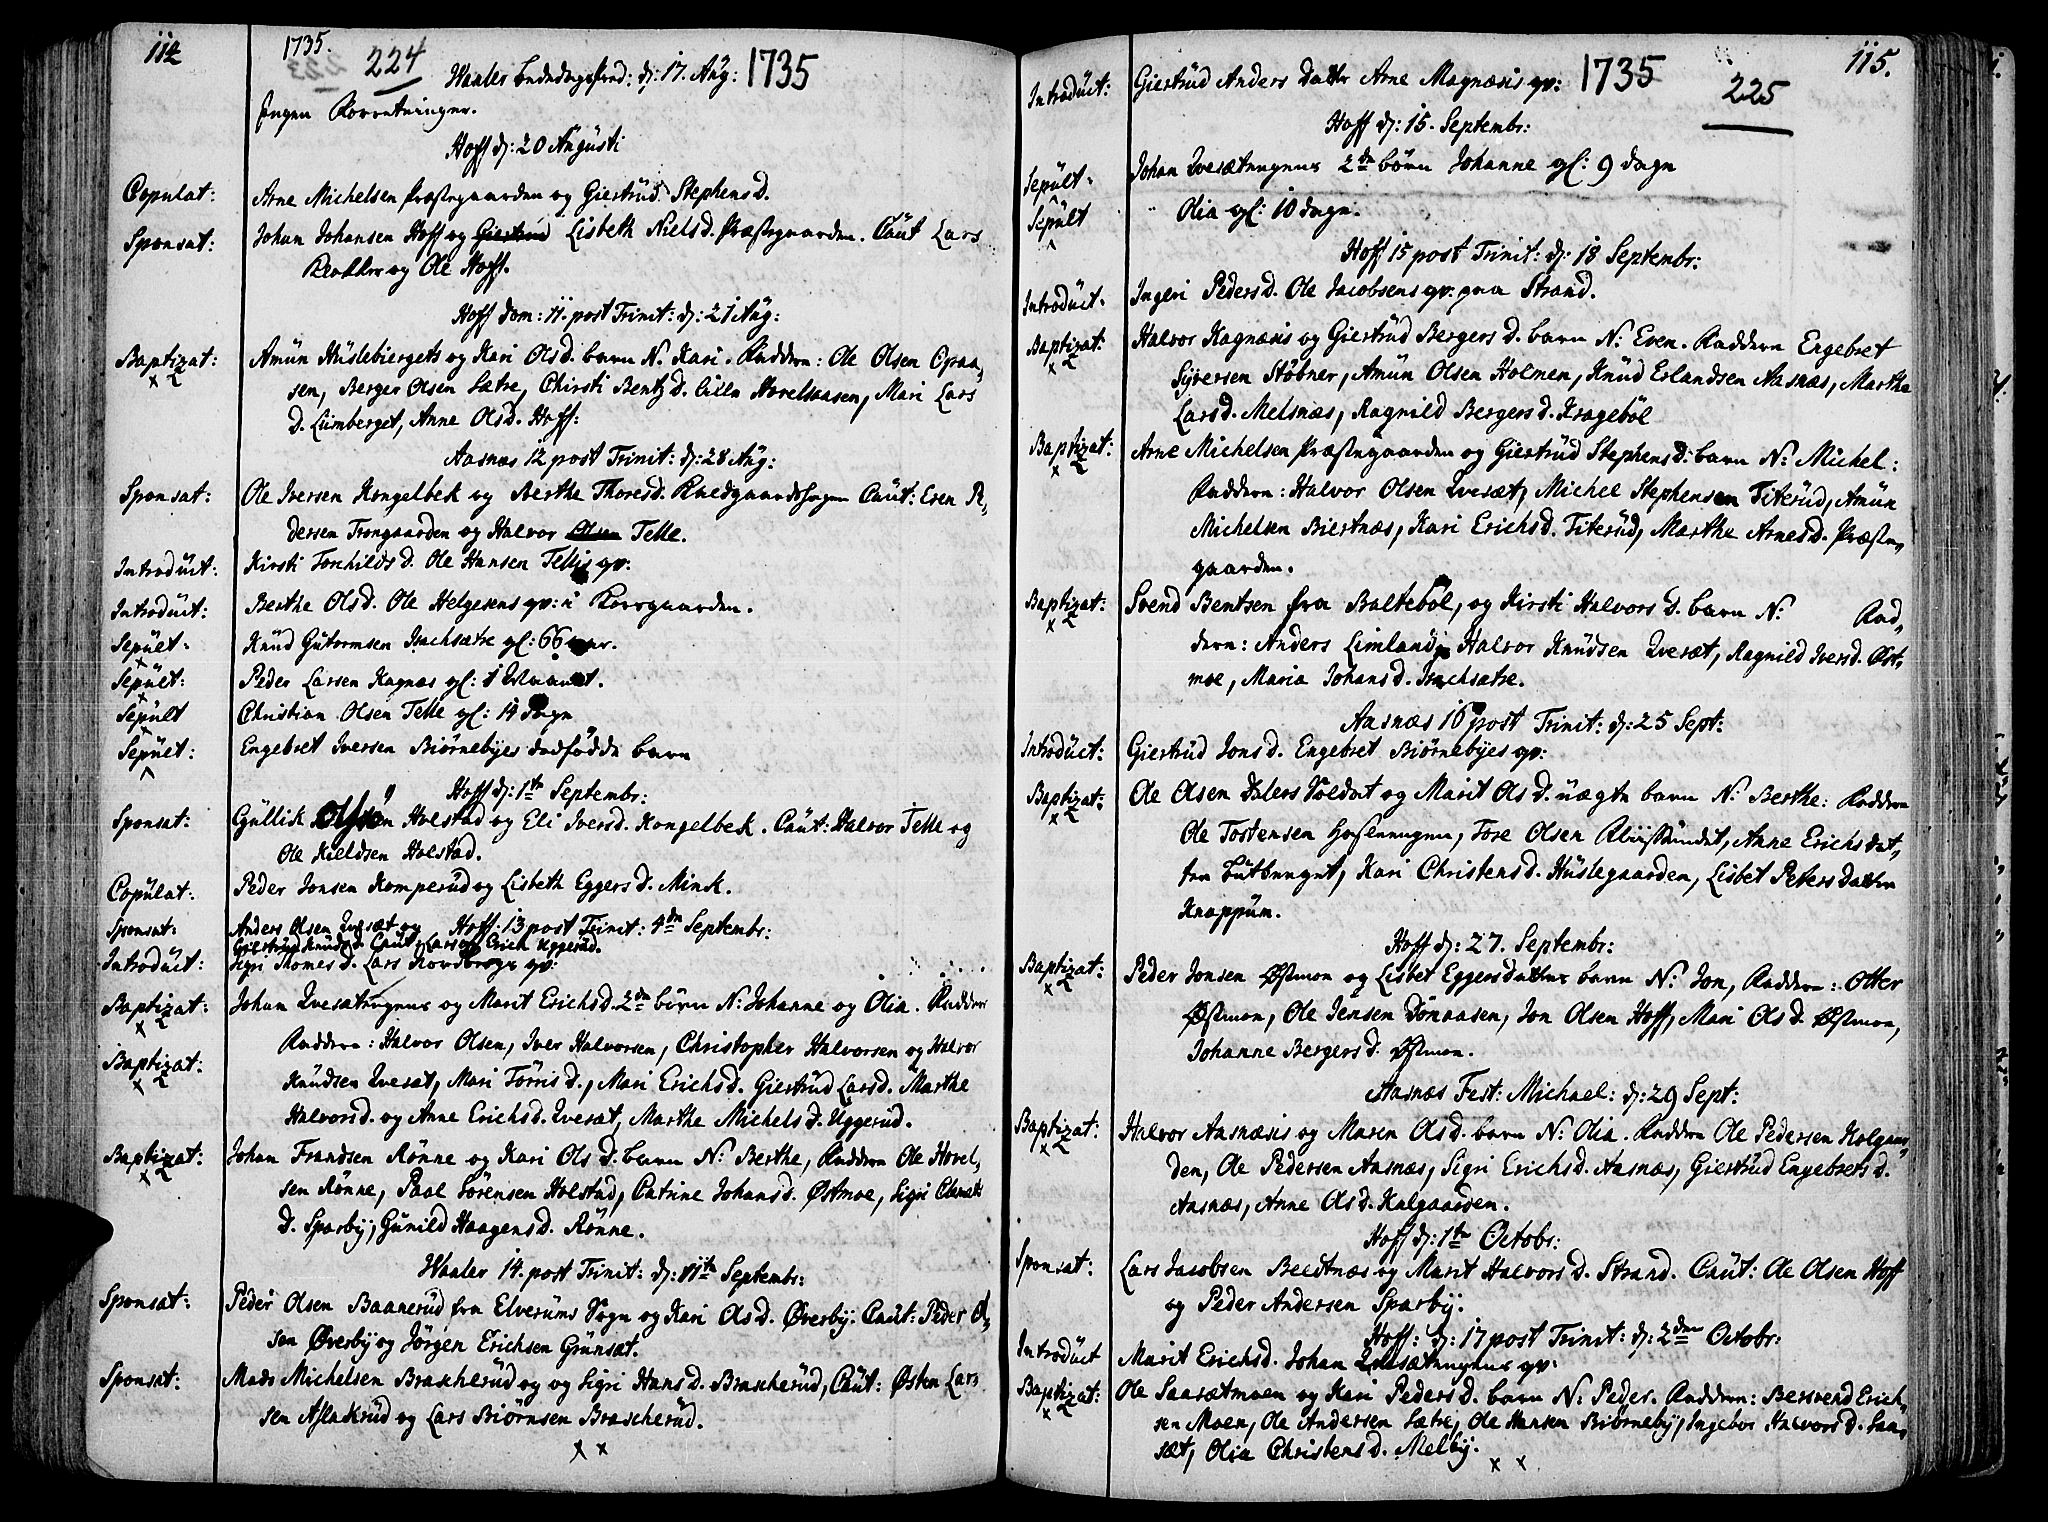 114
1735.
224
Waaler d: 17. Aug: 1735
Ingen
Hoff d: 20 Augusti
Copulat: Arne Michelsen Præstegaarden og Giertrud Stephens D.
Sponsat: Johan Johansen Hoff og Giertrud Lisbeth Niels D. Præstegaarden. Caut Lars
og Ole Hoff.
Hoff Dom: 11. post Trinit: d: 21 Aug:
Baptizat: Amun Huslebiergets og Kari Ols D. barn N. Kari. Faddere: Ole Olsen Opsaa,
sen, Berger Olsen Sætre, Chirsti Bentz D. Lille Nordsaasen, Mari Lars
D. Lumberget, Anne Ols D. Hoff:
Aasnæs 12 post Trinit: d: 28 Aug:
Sponsat: Ole Iversen Kongelbek og Berthe Thores D. Caut: Even Pe,
dersen Trongaarden og Halvor Olsen Telle.
Introduct: Kirsti Torchilds D. Ole Hansen Tellis qv:
Introduct: Berthe Ols D. Ole Helgesens qv: i
Sepult: Knud Gutormsen Isachsætre gl: 66 aar.
Sepult: Peder Larsen Kagnæs gl: 1 Maanet.
Sepult Christian Olsen Telle gl: 14 dage
Sepult: Engebret Iversen Biørnebyes dødfødde barn
Hoff d: 1te Septembr:
Sponsat: Gullik Olsen Hvestad og Eli Ivers D. Kongelbek. Caut: Halvor Telle og
Ole Kieldsen Holstad.
Copulat: Peder Jonsen Komperud og Lisbeth Eggers D. Mink.
Sponsat: Anders Olsen Qvesæt og Hoff. 13 post Trinit: 4de Septembr:
Giertrud Knuds D. Caut: Lars og Erich Uggerud.
Introduct: Sigri Thomes D. Lars qv:
Baptizat: Johan Qvesætengens og Marit Erichs D. 2de børn N: Johanne og Olia. Faddere
Baptizat: Faddere: Halvor Olsen, Iver Halvorsen, Christopher Halvorsen og Halvor
Knudsen Qvesæt, Mari Tørris D., Mari Erichs D. Giertrud Lars D. Marthe
Halvors D. og Anne Erichs D. Qvesæt, Marthe Michels D. Uggerud.
Baptizat: Johan Frandsen Rønne og Kari Ols D. barn N: Berthe, Faddere Ole Hovel,
sen Rønne, Paal Sørensen Holstad, Catrine Johans D. Østmoe, Sigri Clemets
D. Sparby, Gunild Haagens D. Rønne.
Waaler 14. post Trinit: d: 11te Septembr:
Sponsat: Peder Olsen Baanerud fra Elverums Sogn og Kari Ols D. Øverby: Caut: Peder Ol,
sen Øverby og Jørgen Erichsen Grunsæt.
Sponsat: Mads Michelsen Brascherud og og Sigri Hans D. Brascherud, Caut: Østen Lars
sen Aslakrud og Lars Biørnsen Brascherud.
x x
115.
Introduct: Giertrud Anders Datter Arne Magnæsis qv: 1735
225
Hoff d: 15. Septembr:
Sepult: Johan Qvesætengens 2de børn Johanne gl: 9 dage
Sepult Olia gl: 10 dage.
Hoff 15 post Trinit: d: 18 Septembr:
Introduct: Ingeri Peders D. Ole Jacobsens qv: paa Strand.
Baptizat: Halvor Kagnæsis og Giertrud Bergers D. barn N: Even. Faddere Engebret
Syversen Støbner, Amun Olsen Holmen, Knud Erlandsen Aasnæs, Marthe
Lars D. Melsnæs, Ragnild Bergers D. Kragebøl
Baptizat: Arne Michelsen Præstegaarden og Giertrud Stephens D: barn N: Michel:
Faddere: Halvor Olsen Qvesæt, Michel Stephensen Titerud, Amun
Michelsen Biertnæs, Kari Erichs D. Titerud, Marthe Arnes D. Præste,
gaarden.
Baptizat: Svend Bentsen fra Baltebøl, og Kirsti Halvors D. barn N: Fad,
dere: Anders Limland, Halvor Knudsen Qvesæt, Ragnild Ivers D. Øst,
moe, Maria Johans D. Isachsætre.
Aasnæs 16 post Trinit: d: 25 Sept:
Introduct: Giertrud Jons D. Engebret Biørnebyes qv:
Baptizat: Ole Olsen Dalers Soldat og Marit Ols D. uægte barn N: Berthe: Faddere
Ole Tostensen Tore Olsen Anne Erichsdat,
ter Kari Christens D. Huslegaarden, Lisbet Peters Datter
Knappum.
Hoff d: 27. Septembr:
Baptizat: Peder Jonsen Østmoe og Lisbet Eggersdatters barn N: Jon, Faddere: Otter
Østmoe, Ole Jensen Dønaasen, Jon Olsen Hoff, Mari Ols D. Østmoe,
Johanne Bergers D. Østmoe.
Aasnæs Fest: Michael: d: 29 Sept:
Baptizat: Halvor Aasnæsis og Maren Ols D. barn N: Olia. Faddere Ole Pedersen Kolgaar,
den, Ole Pedersen Aasnæs, Sigri Erichs D. Aasnæs, Giertrud Engebrets D.
Aasnæs, Anne Ols D. Kalgaarden.
Hoff d: 1te Octobr:
Sponsat: Lars Jacobsen Beedtnæs og Marit Halvors D. Strand. Caut: Ole Olsen Hoff
og Peder Andersen Sparby.
Hoff: d: 17 post Trinit: d: 2den Octobr:
Introduct Marit Erichs D. Johan Qvesætengens qv:
Baptizat: Ole Saasætmoen og Kari Peders D. barn N: Peder. Faddere: Bersvend Erich,
sen Moen, Ole Andersen Sætre, Ole Hansen Biørneby, Ingebor Halvors D. Saa,
sæt, Olia Christens D. Melby.
x x